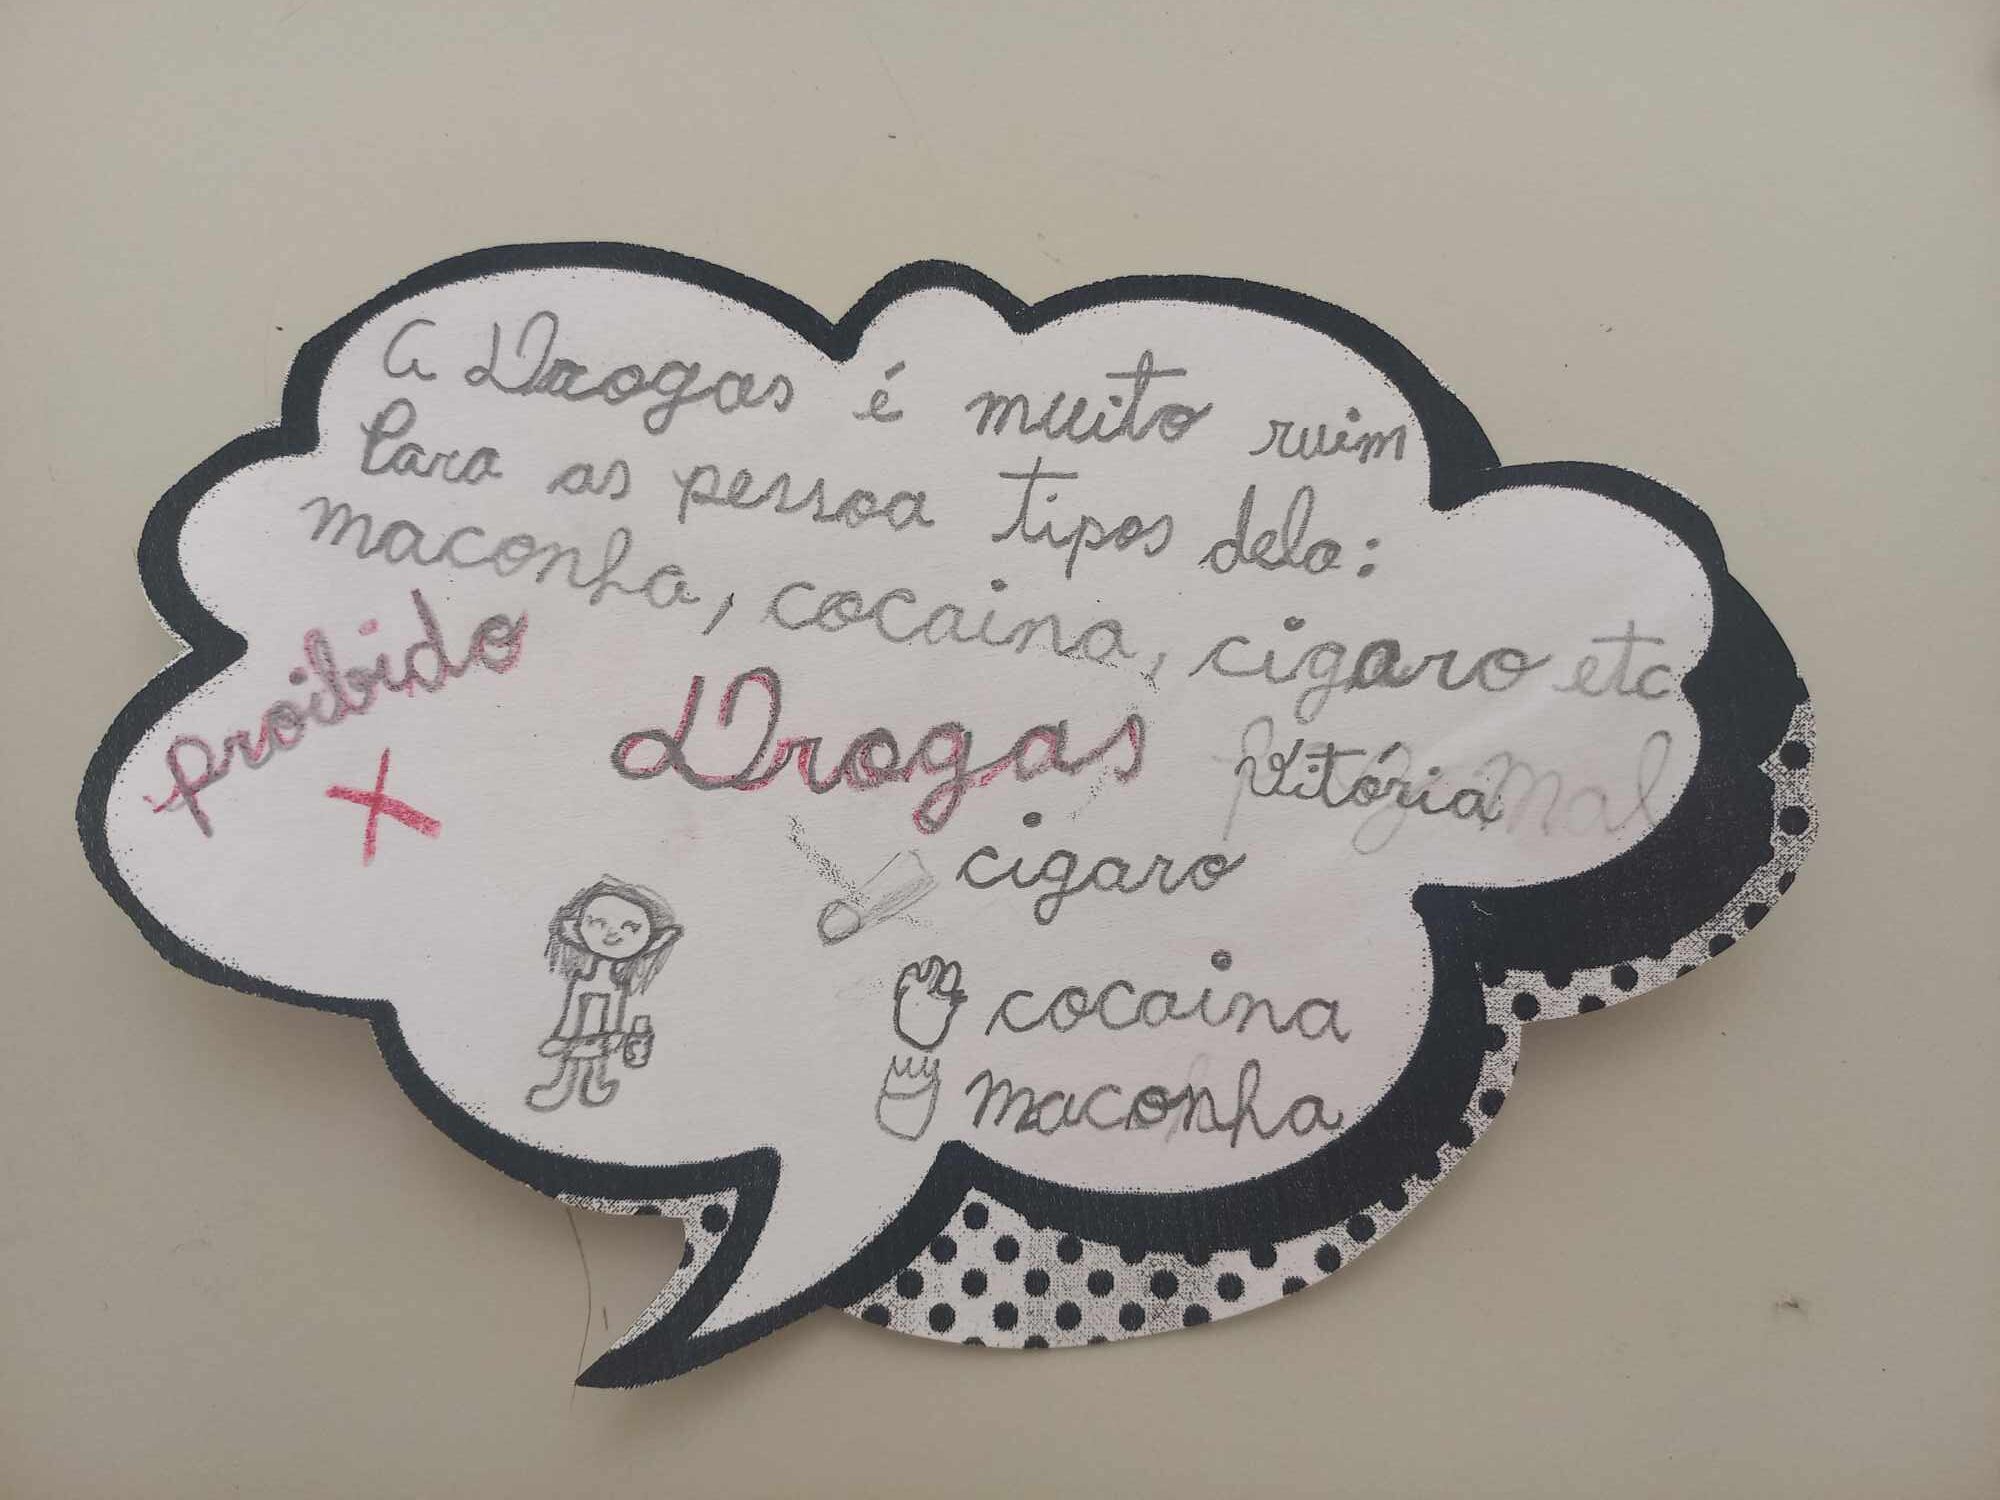 A Drogas é muito ruim
Para as pessoa tipos dela:
maconha, cocaina, cigaro etc
proibido
X
Drogas
Vitória
cigaro
cocaina
maconha